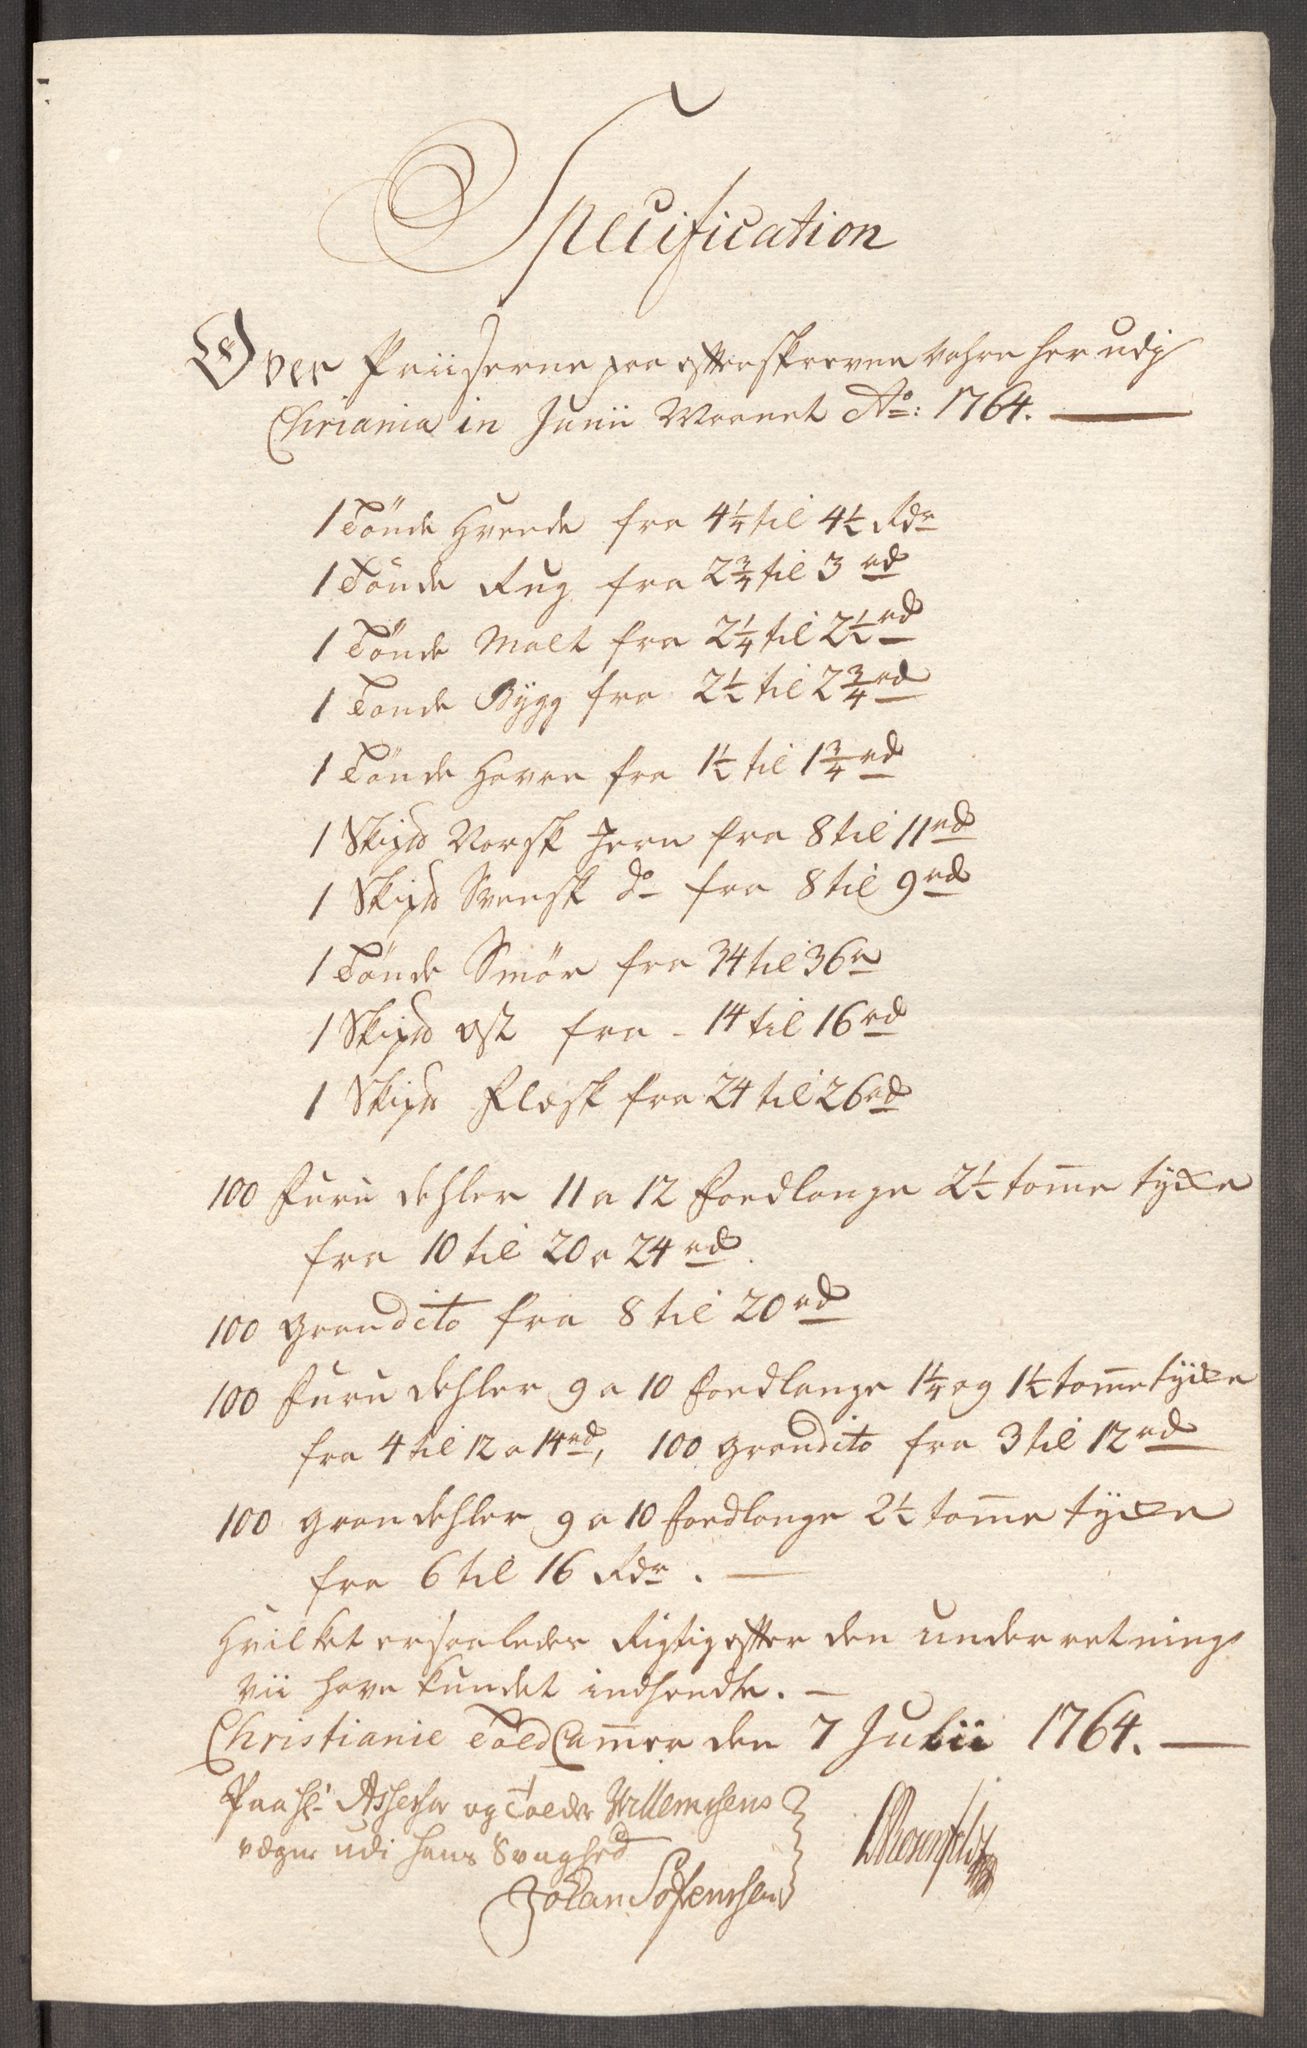 Specification
Over Priiserne paa efterskrevne Vahre her udj
Chriania in Junii Maanet Ao: 1764.
1 Tönde Hvede fra 4 1/4 til 4 1/2 Rdr
1 Tönde Rug fra 2 3/4 til 3 rd
1 Tönde Malt fra 2 1/4 til 2 1/2 rd
1 Tönde Bÿgg fra 2 1/2 til 2 3/4 rd
1 Tönde Havre fra 1 1/2 til 1 3/4 rd
1 Skipd Norsk Jern fra 8 til 11 rd
1 Skipd Svensk do fra 8 til 9 rd
1 Tönde Smör fra 34 til 36 r
1 Skipd Ost fra - 14 til 16 rd
1 Skipd Flesk fra 24 til 26 rd
100 Furu dehler 11 a 12 Foedlange 2 1/2 tome tyxe
fra 10 til 20 a 24 rd.
100 Grandito fra 8 til 20 rd
100 Furu dehler 9 a 10 Foedlange 1 1/4 og 1 1/2 tome tÿxe
fra 4 til 12 a 14 rd, 100 Grandito fra 3 til 12 rd
100 Grandehler 9 a 10 Foedlange 2 1/2 tome tÿxe
fra 6 til 16 Rdr.
Hvilket ersaaledes Rigtig efter den underretning
vii have kundet indhendte.
Christianie Told Camer den 7 Julii 1764.
Paa Hr Assessor og Tolder Willemsens
vegne udi hans Svaghed
Johan